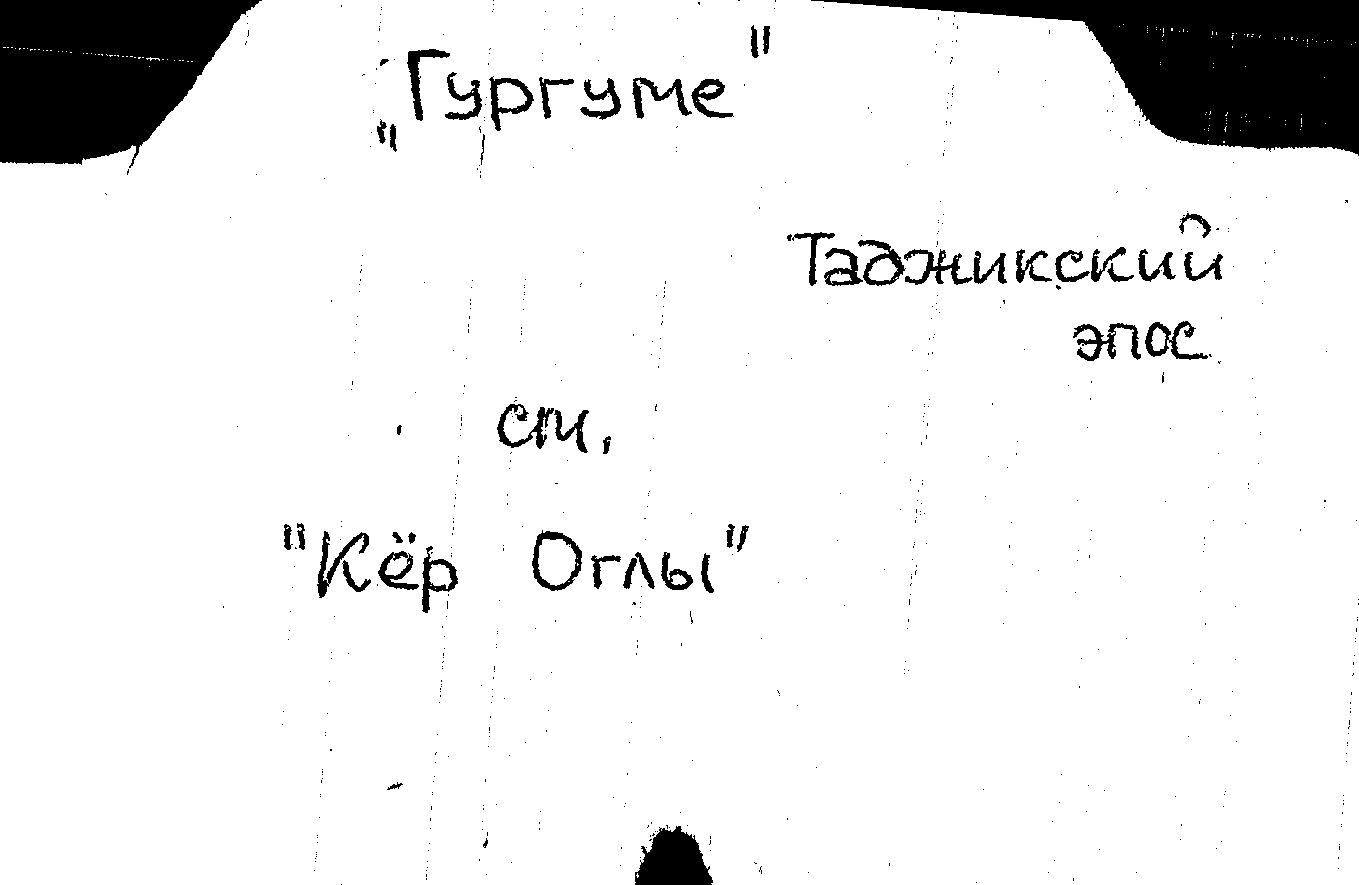 „Гургуме"
Таджикский
эпос
см.
"Кёр Оглы"